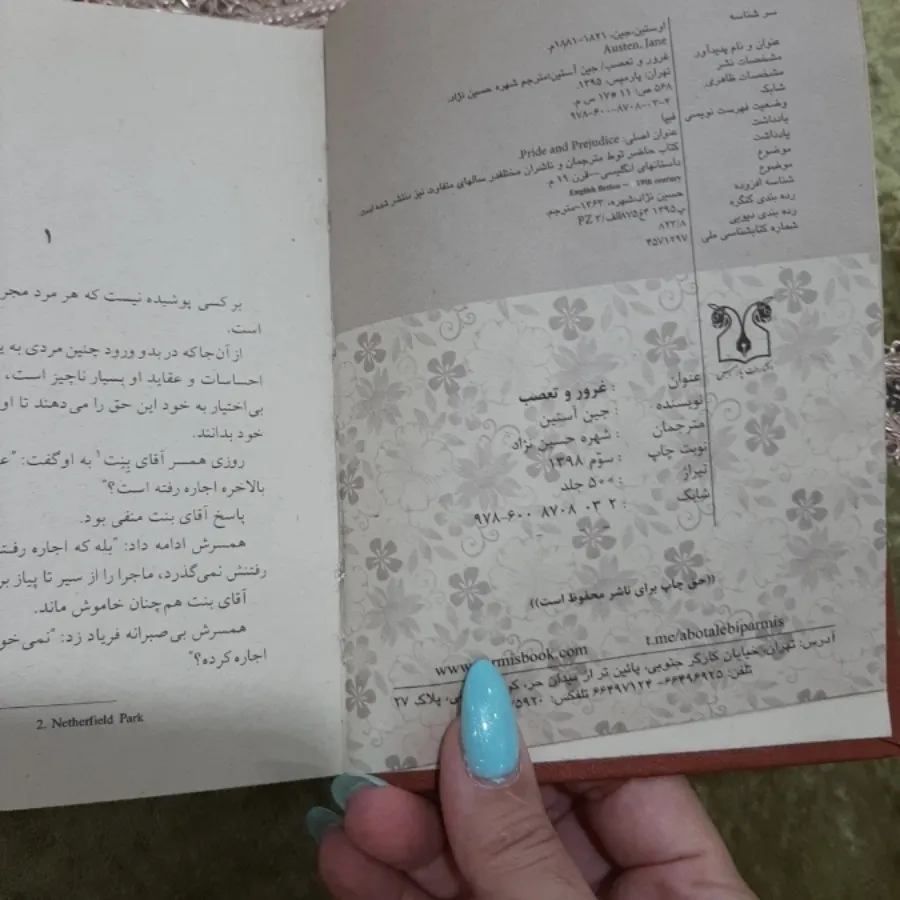 سر شناسه
اوستین، جین، ۱۸۲۱-۱۸۸۱م.
Austen, Jane
عنوان و نام پدیدآور
غرور و تعصب/ جین آستین؛مترجم شهره حسین نژاد.
مشخصات نشر
تهران: پارمیس، ۱۳۹۵.
مشخصات ظاهری
۵۶۸ ص؛ ۱۱ * ۱۷ س م.
شابک
۹۷۸-۶۰۰-۸۷۰۸-۰۳-۲
وضعیت فهرست نویسی
فیپا
یادداشت
عنوان اصلی: Pride and Prejudice.
یادداشت
کتاب حاضر توط مترجمان و ناشران مختلفدر سالهای متفاوت نیز منتشر شده است.
موضوع
داستانهای انگلیسی--قرن ۱۹ م.
موضوع
English fiction -- 19th century
شناسه افزوده
حسین نژاد،شهره، ۱۳۶۳-مترجم.
رده بندی کنگره
PZ ۳/
رده بندی دیویی
۸۲۳/۸
شماره کتابشناسی ملی
۴۵۷۱۲۹۷
عنوان : غرور و تعصب
نویسنده : جین آستین
مترجمان : شهره حسین نژاد
نوبت چاپ : سوّم ۱۳۹۸
تیراژ : ۵۰۰ جلد
شابک : ۲ ۰۳ ۸۷۰۸ ۹۷۸-۶۰۰
((حق چاپ برای ناشر محفوظ است))
t.me/abotalebiparmis
آدرس: تهران، خیابان کارگر جنوبی، پائین تر از میدان حر، پلاک ۲۷
تلفن: ۶۶۴۹۶۹۲۵- ۶۶۴۹۷۱۲۴ تلفکس:
۱
بر کسی پوشیده نیست که هر مرد مجر
است.
از آن‌جا که در بدو ورود چنین مردی به
احساسات و عقاید او بسیار ناچیز است،
بی‌اختیار به خود این حق را می‌دهند تا او
خود بدانند.
روزی همسر آقای بنت۱ به او گفت: "
بالاخره اجاره رفته است؟"
پاسخ آقای بنت منفی بود.
همسرش ادامه داد: "بله که اجاره رفته
رفتنش نمی‌گذرد، ماجرا را از سیر تا پیاز
آقای بنت هم‌چنان خاموش ماند.
همسرش بی‌صبرانه فریاد زد: "نمی‌خو
اجاره کرده؟"
2. Netherfield Park